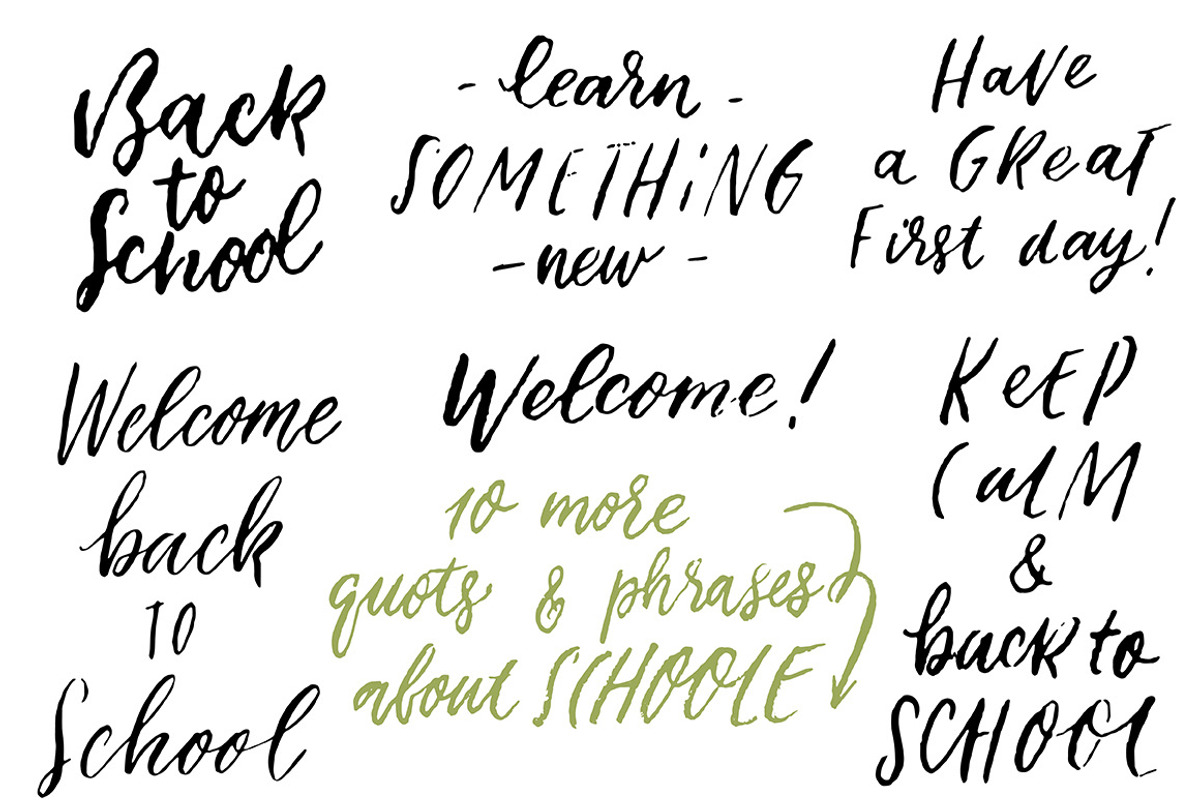 Back
to
School
- learn -
SOMETHiNG
- new -
Have
a GReaT
First day!
Welcome
back
TO
School
Welcome!
10 more
quots & phrases
about SCHOOLE
KeEP
CalM
&
back to
SCHOOL